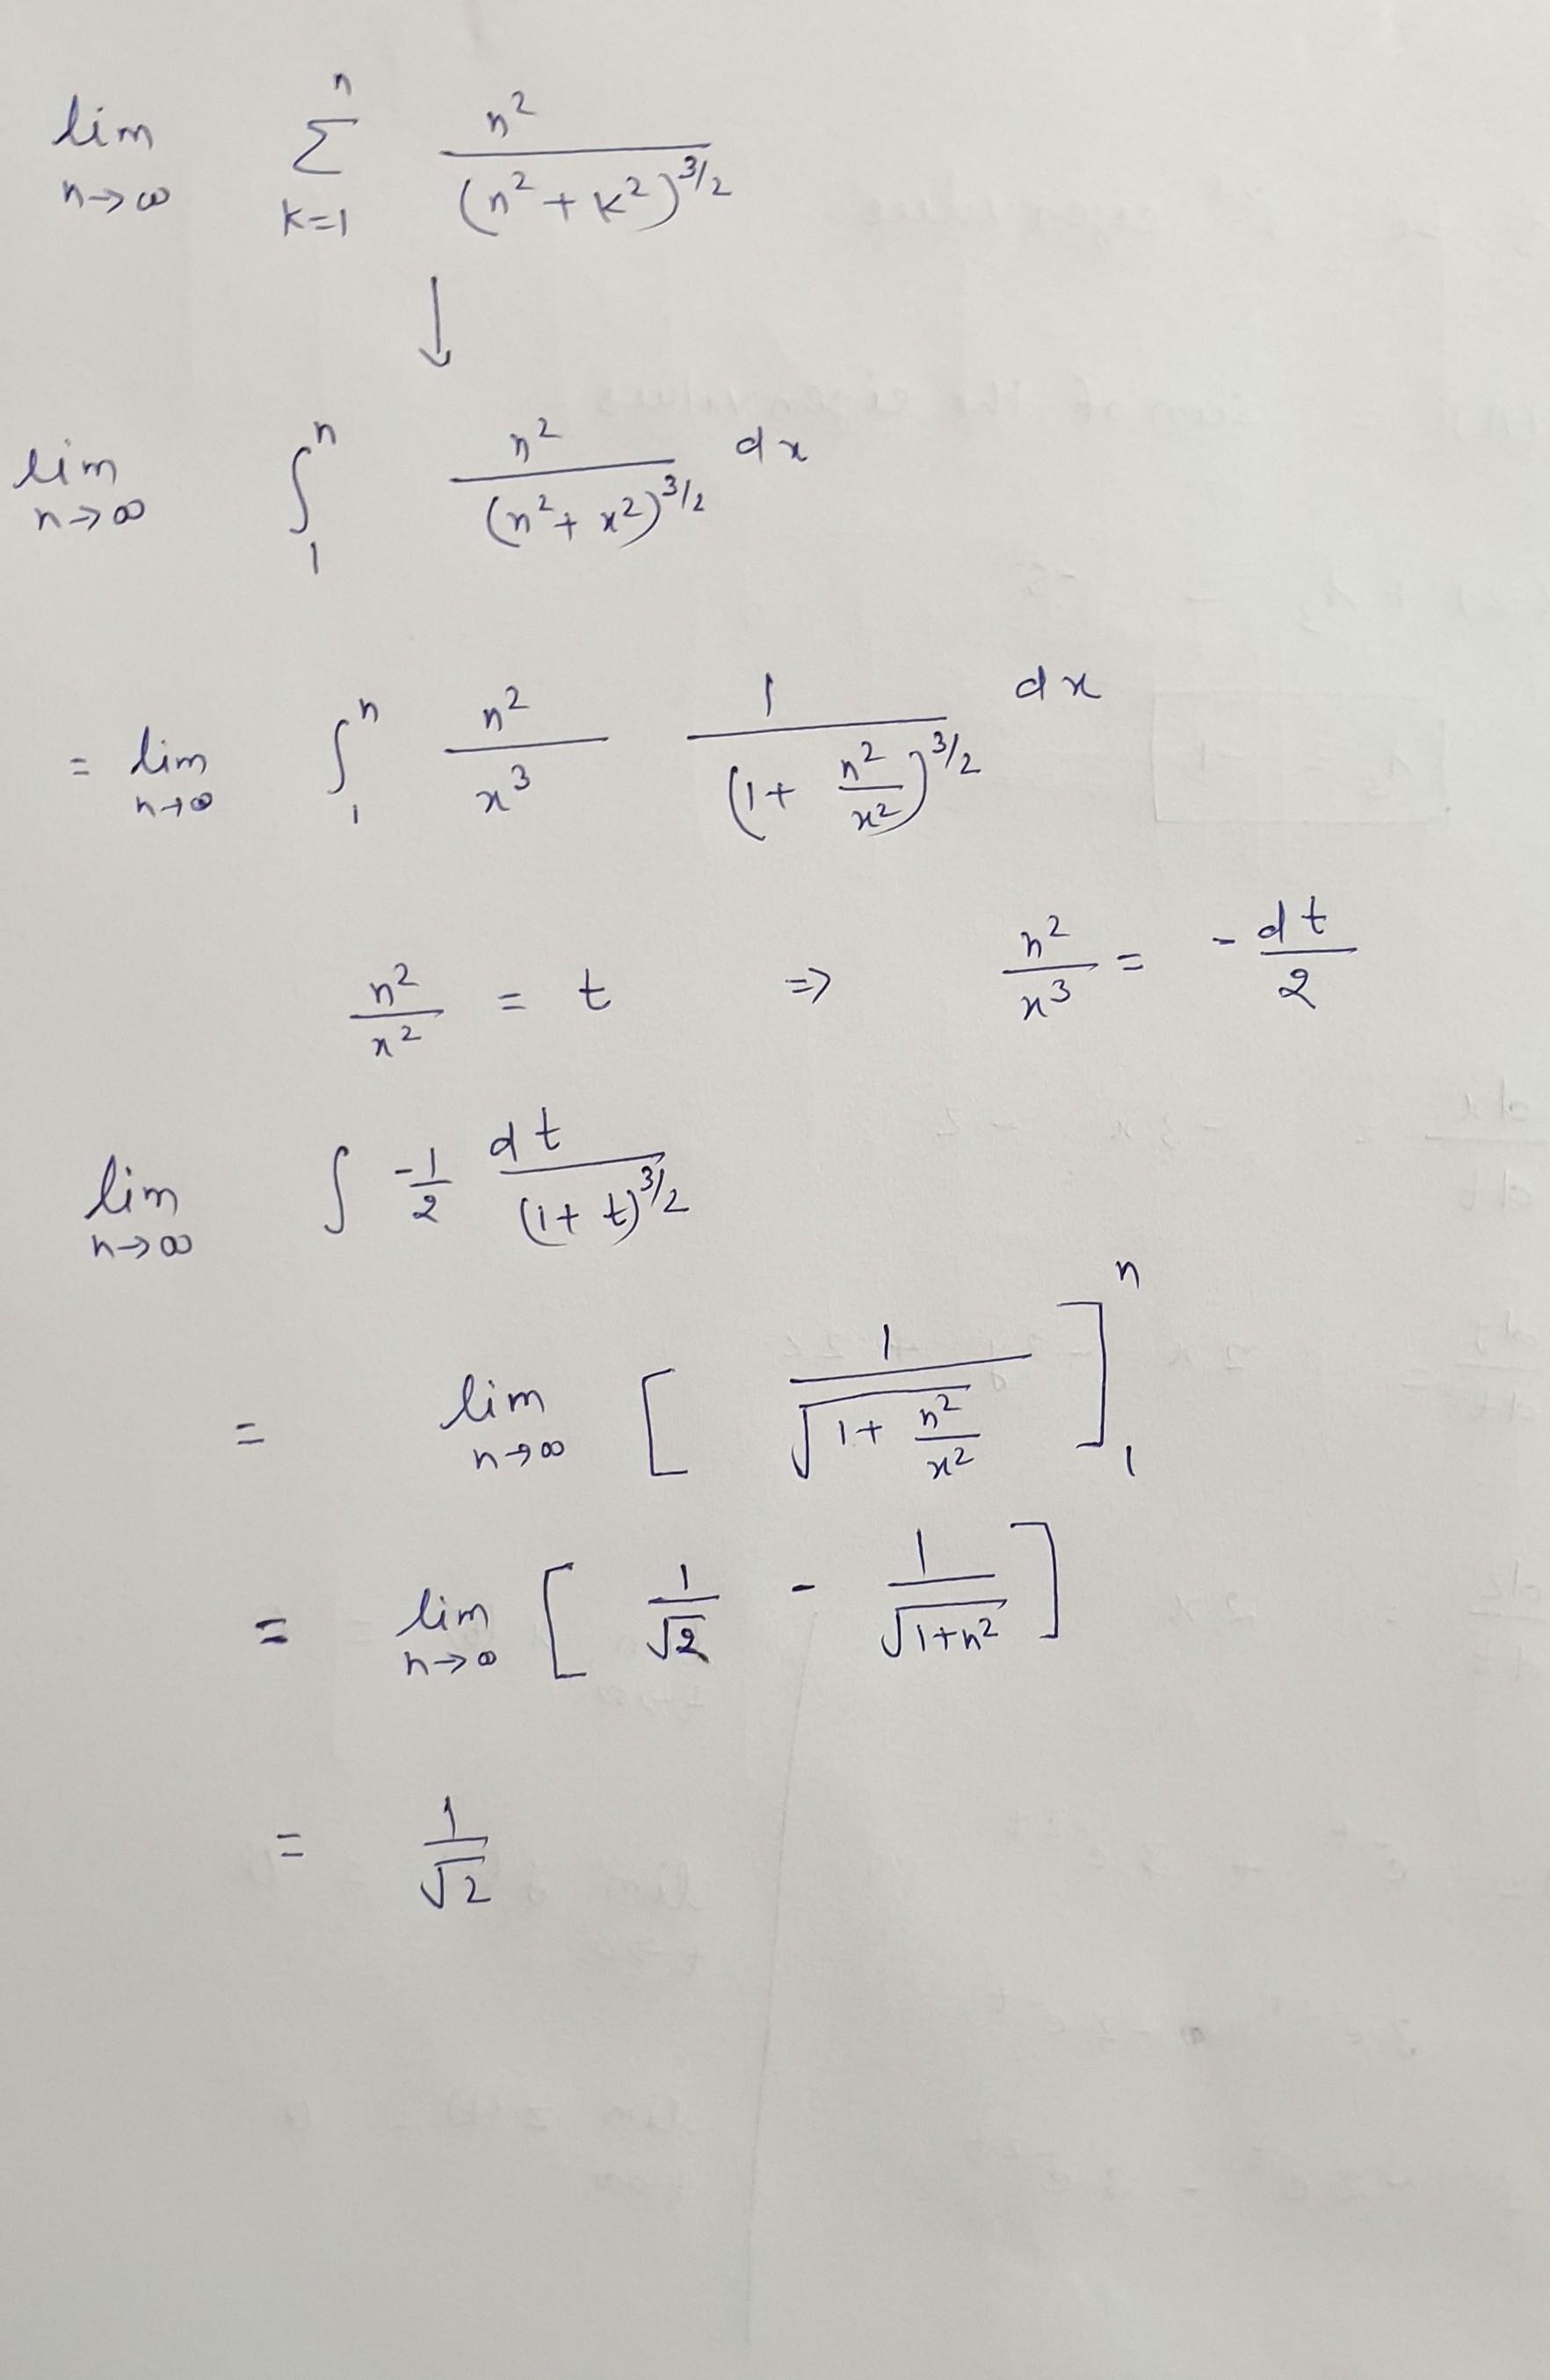 lim n→∞ Σ k=1 n n² / (n² + k²)^3/2
↓
lim n→∞ ∫ 1 n n² / (n² + x²)^3/2 dx
= lim n→∞ ∫ 1 n n² / x³ 1 / (1 + n²/x²)^3/2 dx
n²/x² = t ⇒ n²/x³ = - dt/2
lim n→∞ ∫ -1/2 dt / (1 + t)^3/2
= lim n→∞ [ 1 / √(1 + n²/x²) ] n 1
= lim n→∞ [ 1/√2 - 1/√(1+n²) ]
= 1/√2